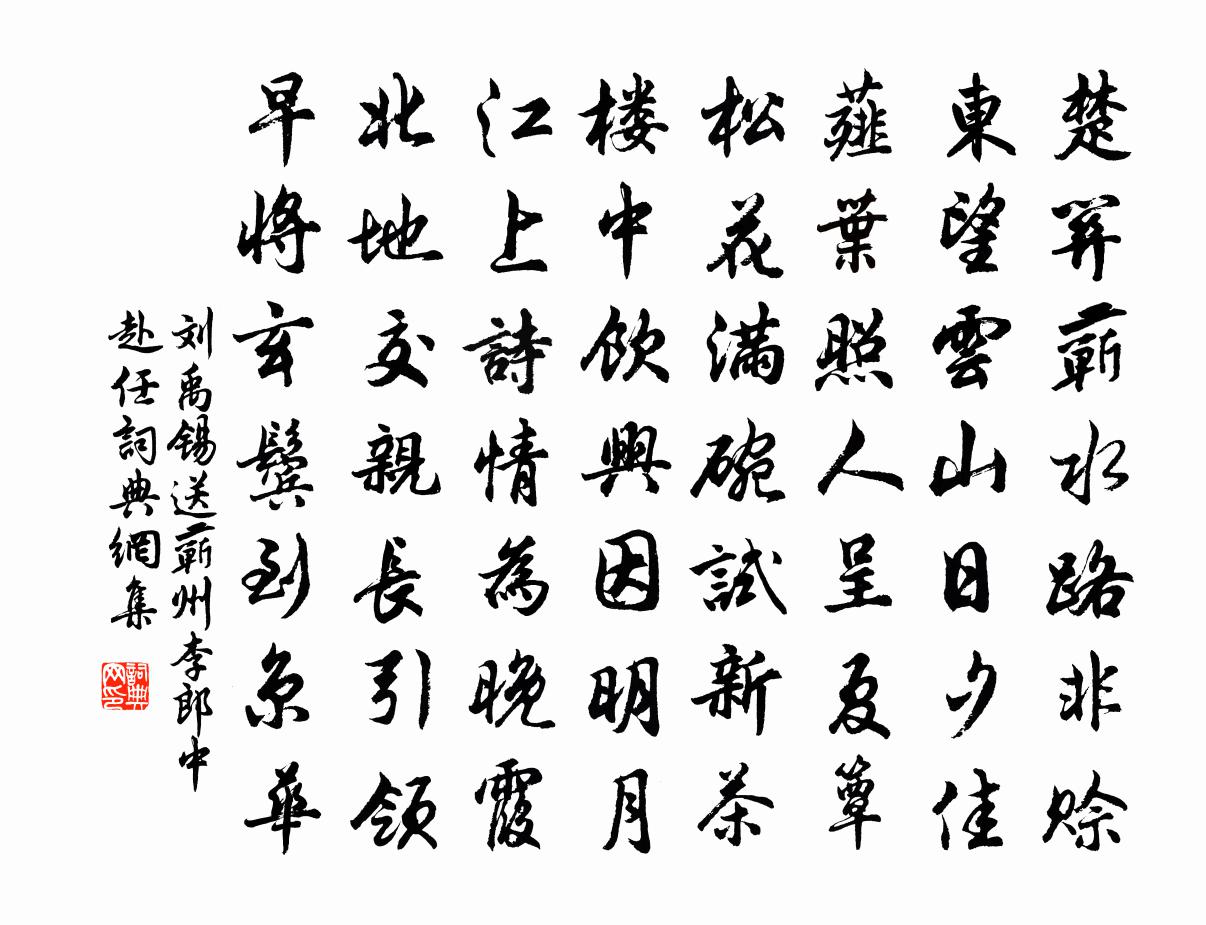 楚關蘄水路非賒
東望雲山日夕佳
薤葉照人呈夏簟
松花滿碗試新茶
楼中飲興因明月
江上詩情為晚霞
北地交親長引領
早將玄鬢到京華
刘禹锡送蘄州李郎中
赴任詞典網集
詞典
网印